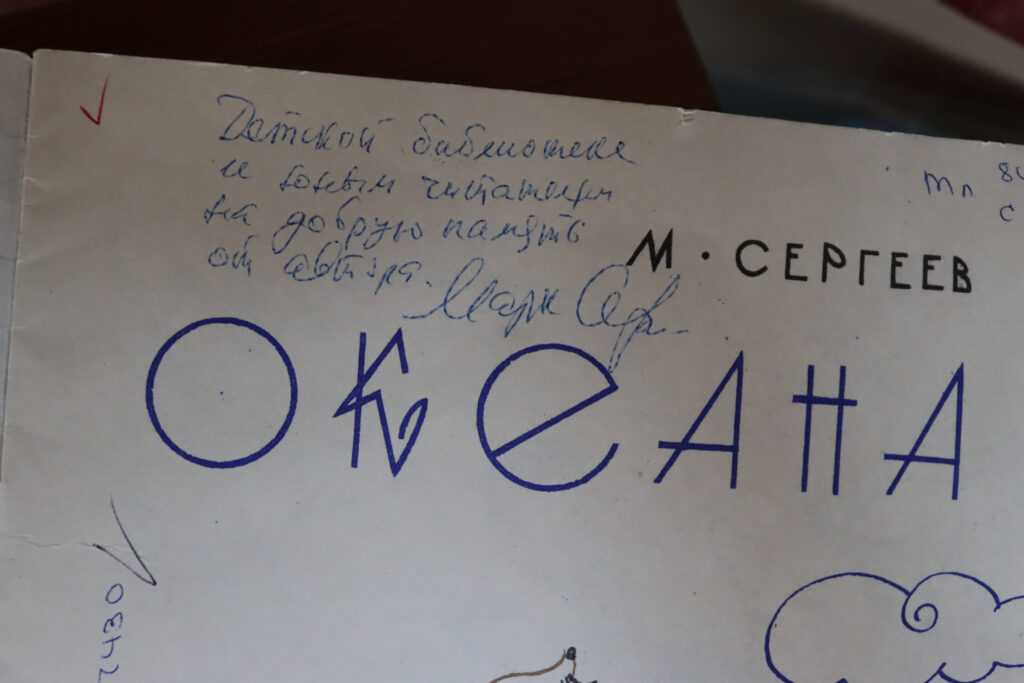 Детской библиотеке
и юным читателям
на добрую память
от автора. Марк Сер.
Мл 84
С
М. СЕРГЕЕВ
ОКЕАНА
7430